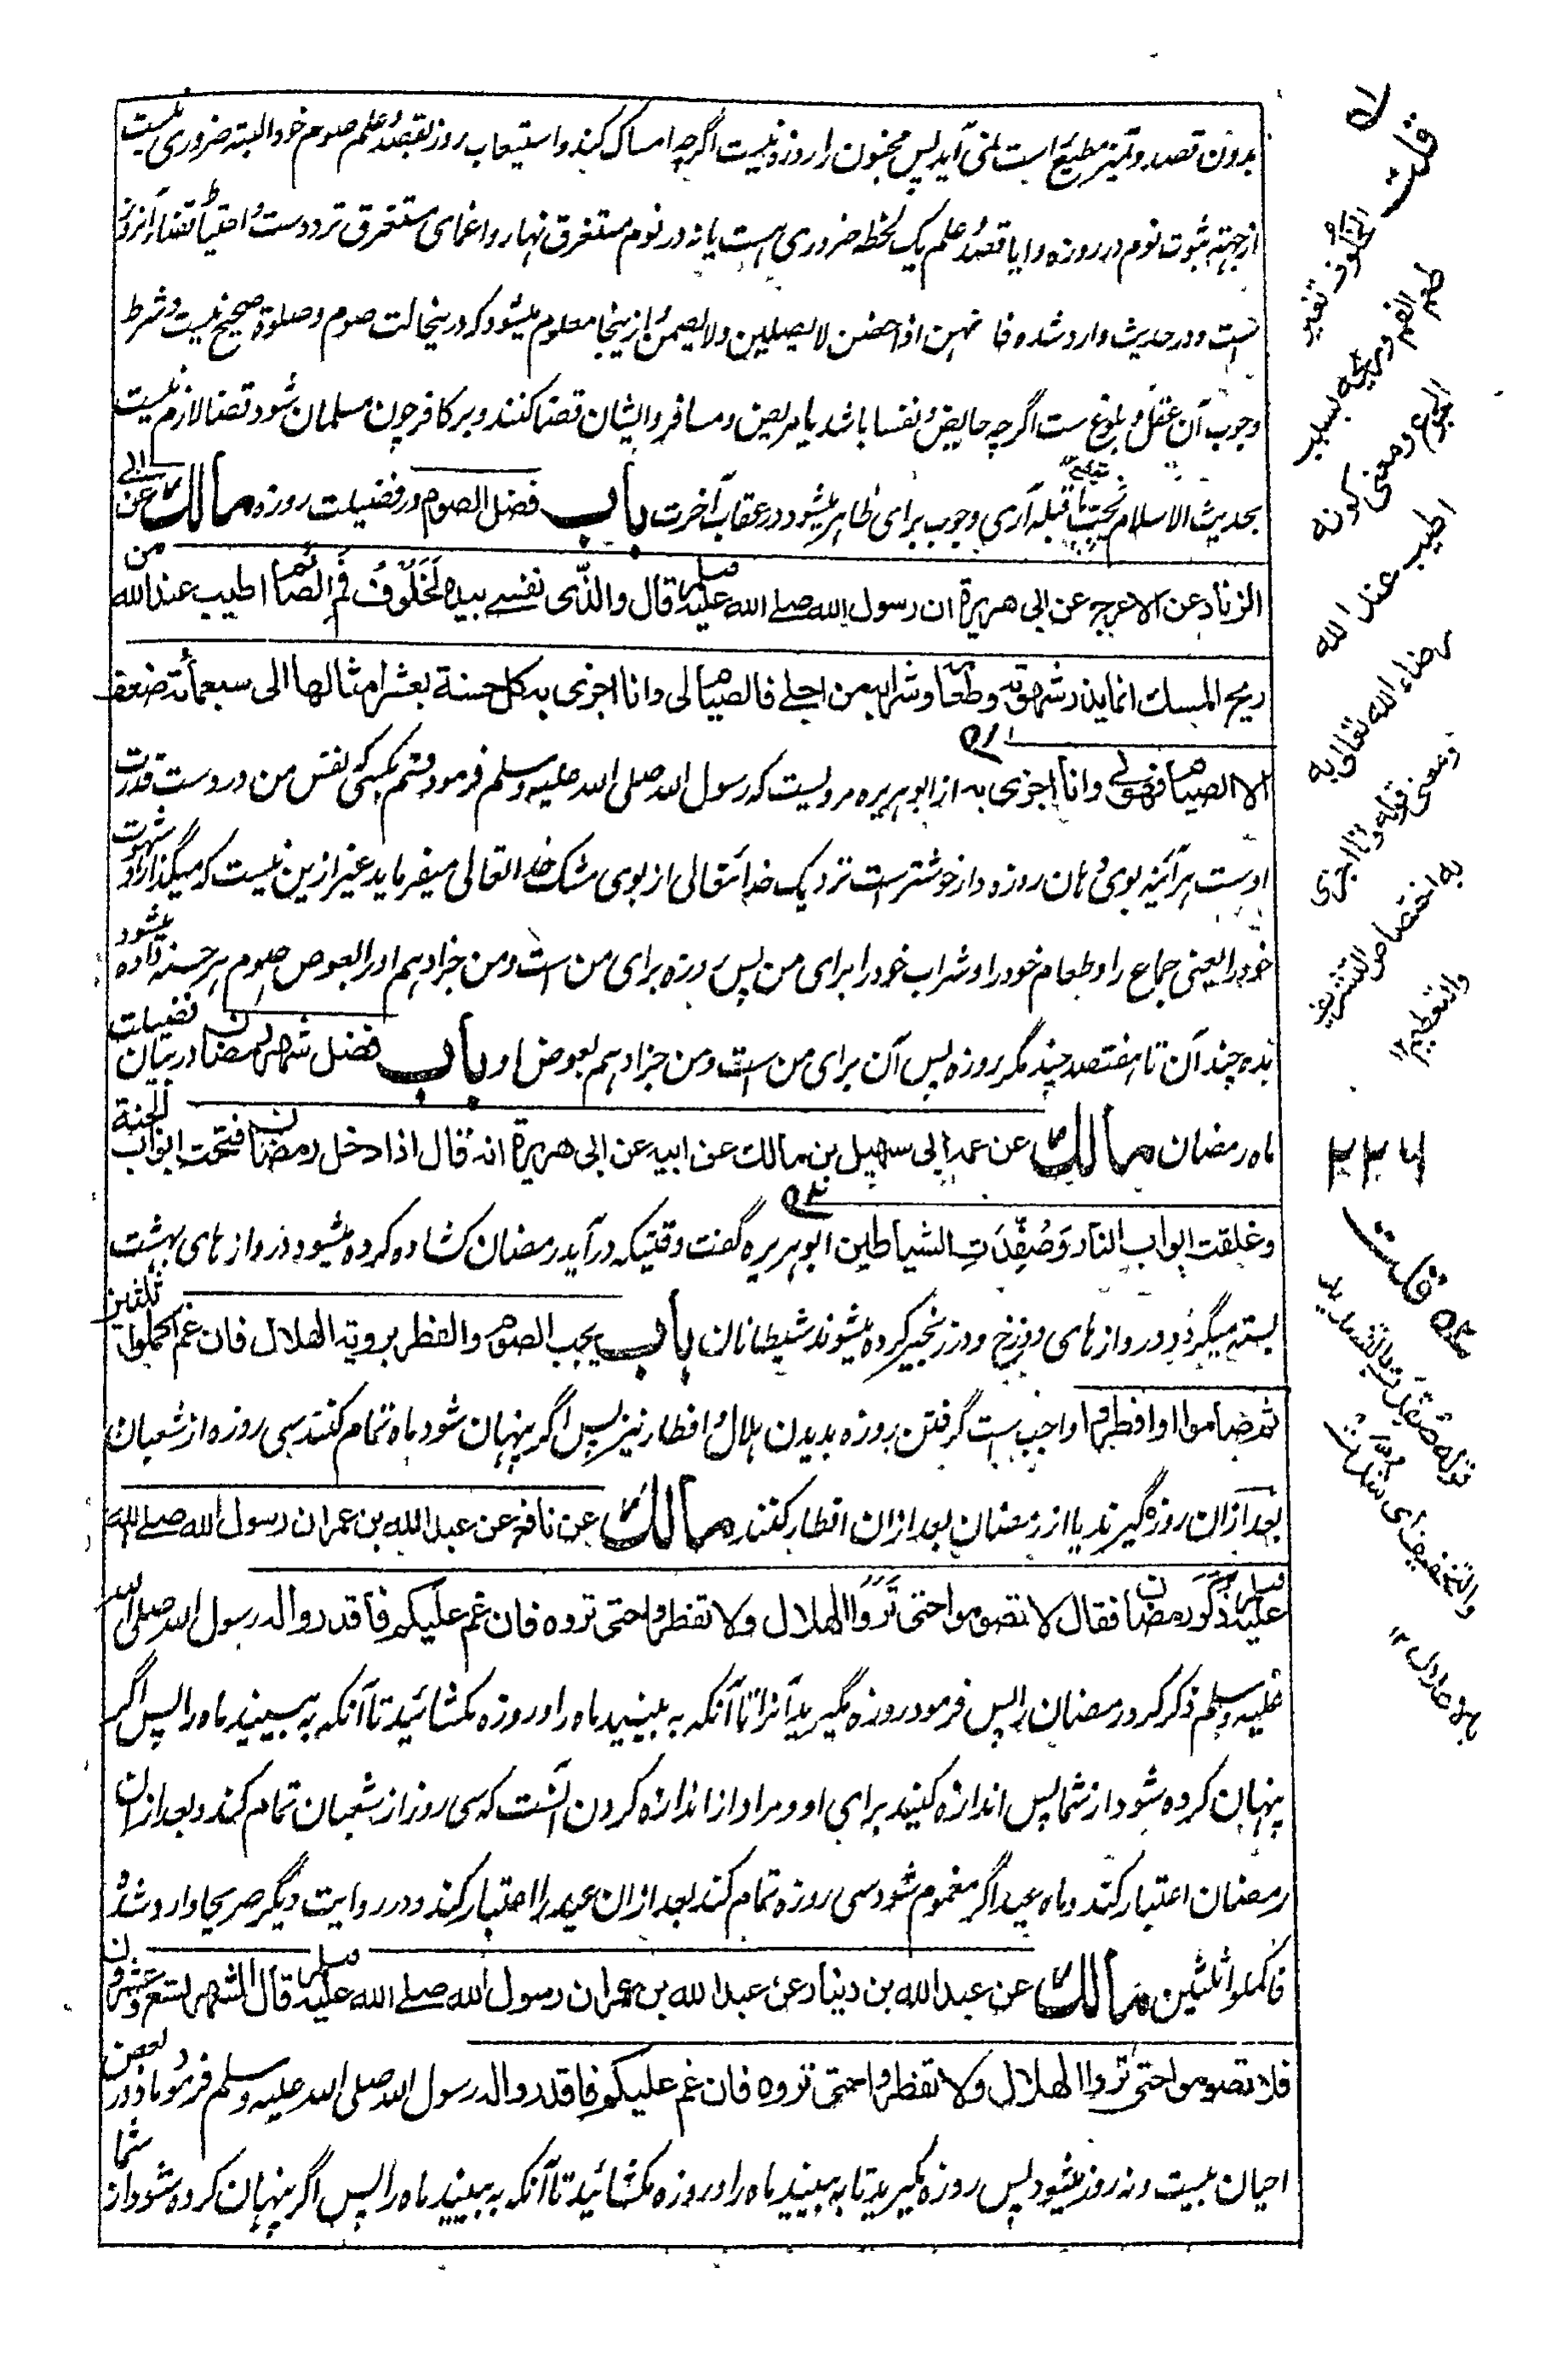 بدون قصد و تمیز مطیع است نمی آید پس مجنون را روزه نیست اگرچه امساک کند و استیعاب روز بقصد و علم صوم خود البته ضروری نیست
از جهة ثبوت نوم در روزه و ایا قصد و علم یک لحظه ضروری هست یا نه در نوم مستغرق نهار و اغمای مستغرق تردد ست و احتیاطا قضاء آنروز
است و در حدیث وارد شده فانهن اذا حضن لا یصلین ولا یصمن و ازینجا معلوم میشود که درینحالت صوم و صلوة صحیح نیست و شرط
وجوب آن عقل و بلوغ ست اگرچه حایض و نفسا باشد یا مریض و مسافر و ایشان قضا کنند و بر کافر چون مسلمان شود قضا لازم نیست
بحدیث الاسلام یجب ما قبله آری وجوب برای ظاهر میشود در عقاب آخرت باب فضل الصوم در فضیلت روزه مالک عن ابی
الزناد عن الاعرج عن ابی هریرة ان رسول الله صلی الله علیه وسلم قال والذی نفسی بیده لخلوف فم الصائم اطیب عند الله من
ریح المسک انما یذر شهوته وطعامه وشرابه من اجلی فالصیام لی وانا اجزی به کل حسنة بعشر امثالها الی سبعمائة ضعف
الا الصیام فهو لی وانا اجزی به از ابو هریره مرویست که رسول الله صلی الله علیه وسلم فرمود قسم بکسی که نفس من در دست قدرت
اوست هر آئینه بوی دهان روزه دار خوشتر است نزدیک خدا تعالی از بوی مشک خدا تعالی میفرماید غیر ازین نیست که میگذارد او شهوت
خود را یعنی جماع را و طعام خود را و شراب خود را برای من پس روزه برای من است و من جزا دهم او را بعوض صوم هر حسنه داده میشود
بده چند آن تا هفتصد چند مگر روزه پس آن برای من ست و من جزا دهم بعوض او باب فضل شهر رمضان در بیان فضیلت
ماه رمضان مالک عن عمه ابی سهیل بن مالک عن ابیه عن ابی هریرة انه قال اذا دخل رمضان فتحت ابواب الجنة
وغلقت ابواب النار وَصُفِّدَتِ الشیاطین ابو هریره گفت وقتیکه در آید رمضان کشاده کرده میشود دروازهای بهشت
بسته میگردد دروازهای دوزخ و در زنجیر کرده میشوند شیطانان باب یجب الصوم والفطر برویة الهلال فان غم اکملوا ثلثین
ثم صاموا او افطروا واجب ست گرفتن روزه بدیدن هلال و افطار نیز پس اگر پنهان شود ماه تمام کنند سی روزه از شعبان
بعد ازان روزه گیرند یا از رمضان بعد ازان افطار کنند مالک عن نافع عن عبد الله بن عمر ان رسول الله صلی الله
علیه وسلم ذکر رمضان فقال لا تصوموا حتی تروا الهلال ولا تفطروا حتی تروه فان غم علیکم فاقدروا له رسول الله صلی الله
علیه وسلم ذکر کرد رمضان را پس فرمود روزه مگیرید آنرا تا آنکه به بینید ماه را و روزه مکشائید تا آنکه به ببینید ماه را پس اگر
پنهان کرده شود از شما پس اندازه کنید برای او و مراد از اندازه کردن آنست که سی روز از شعبان تمام کند و بعد ازان
رمضان اعتبار کند و ماه عید اگر مغموم شود سی روزه تمام کند بعد ازان عید را اعتبار کند و در روایت دیگر صریحا وارد شده
فاکملوا ثلثین مالک عن عبد الله بن دینار عن عبد الله بن عمر ان رسول الله صلی الله علیه وسلم قال الشهر تسع وعشرون
فلا تصوموا حتی تروا الهلال ولا تفطروا حتی تروه فان غم علیکم فاقدروا له رسول الله صلی الله علیه وسلم فرمود ماه در بعض
احیان بیست و نه روز میشود پس روزه مگیرید تا به بینید ماه را و روزه مکشائید تا آنکه به ببینید ماه را پس اگر پنهان کرده شود از شما
له قلت
الخلوف تغیر
طعم الفم وریحه بسبب
الجوع ومعنی کونه
اطیب عند الله
رضاء الله تعالی به
ومعنی قوله وانا اجزی
به اختصاص التشریف
والتعظیم ۱۲
۲۲۶
قلت
قوله صفدت بالتشدید
والتخفیف ای شدت
بالاغلال ۱۲